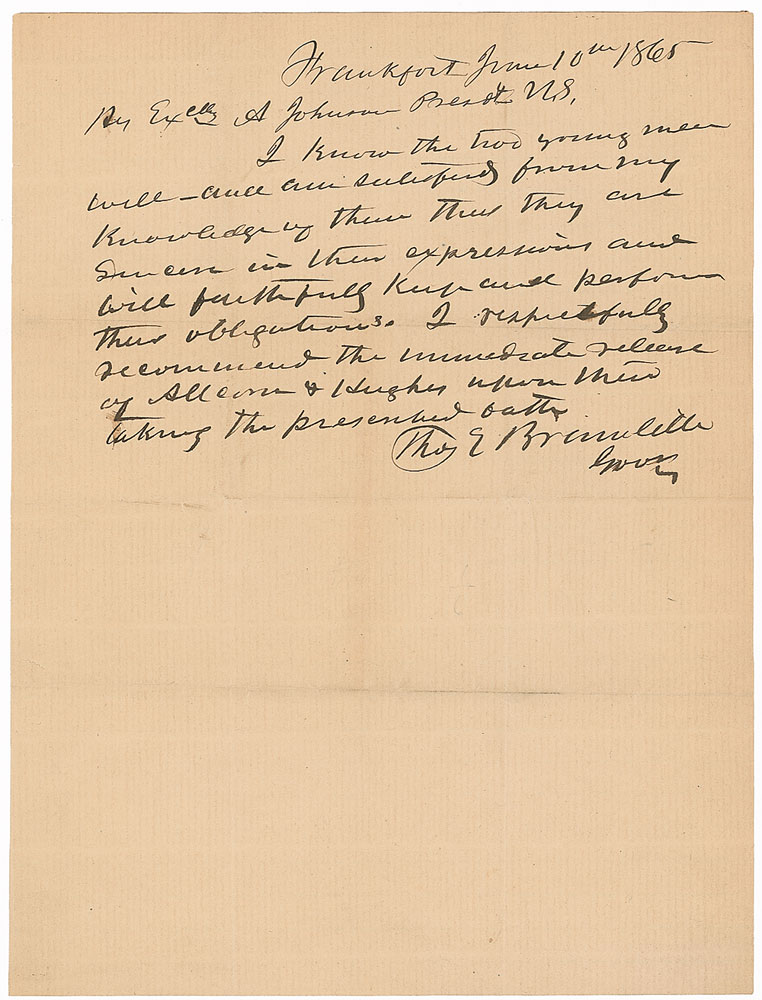 Frankfort June 10th 1865
His Excelly A Johnson Presdt U.S.
I know the two young men
well – and am satisfied from my
knowledge of them that they are
sincere in their expressions and
will faithfully keep and perform
their obligations. I respectfully
recommend the immediate release
of Allcorn & Hughes upon their
taking the prescribed oath
Thos E Bramlette
Govr